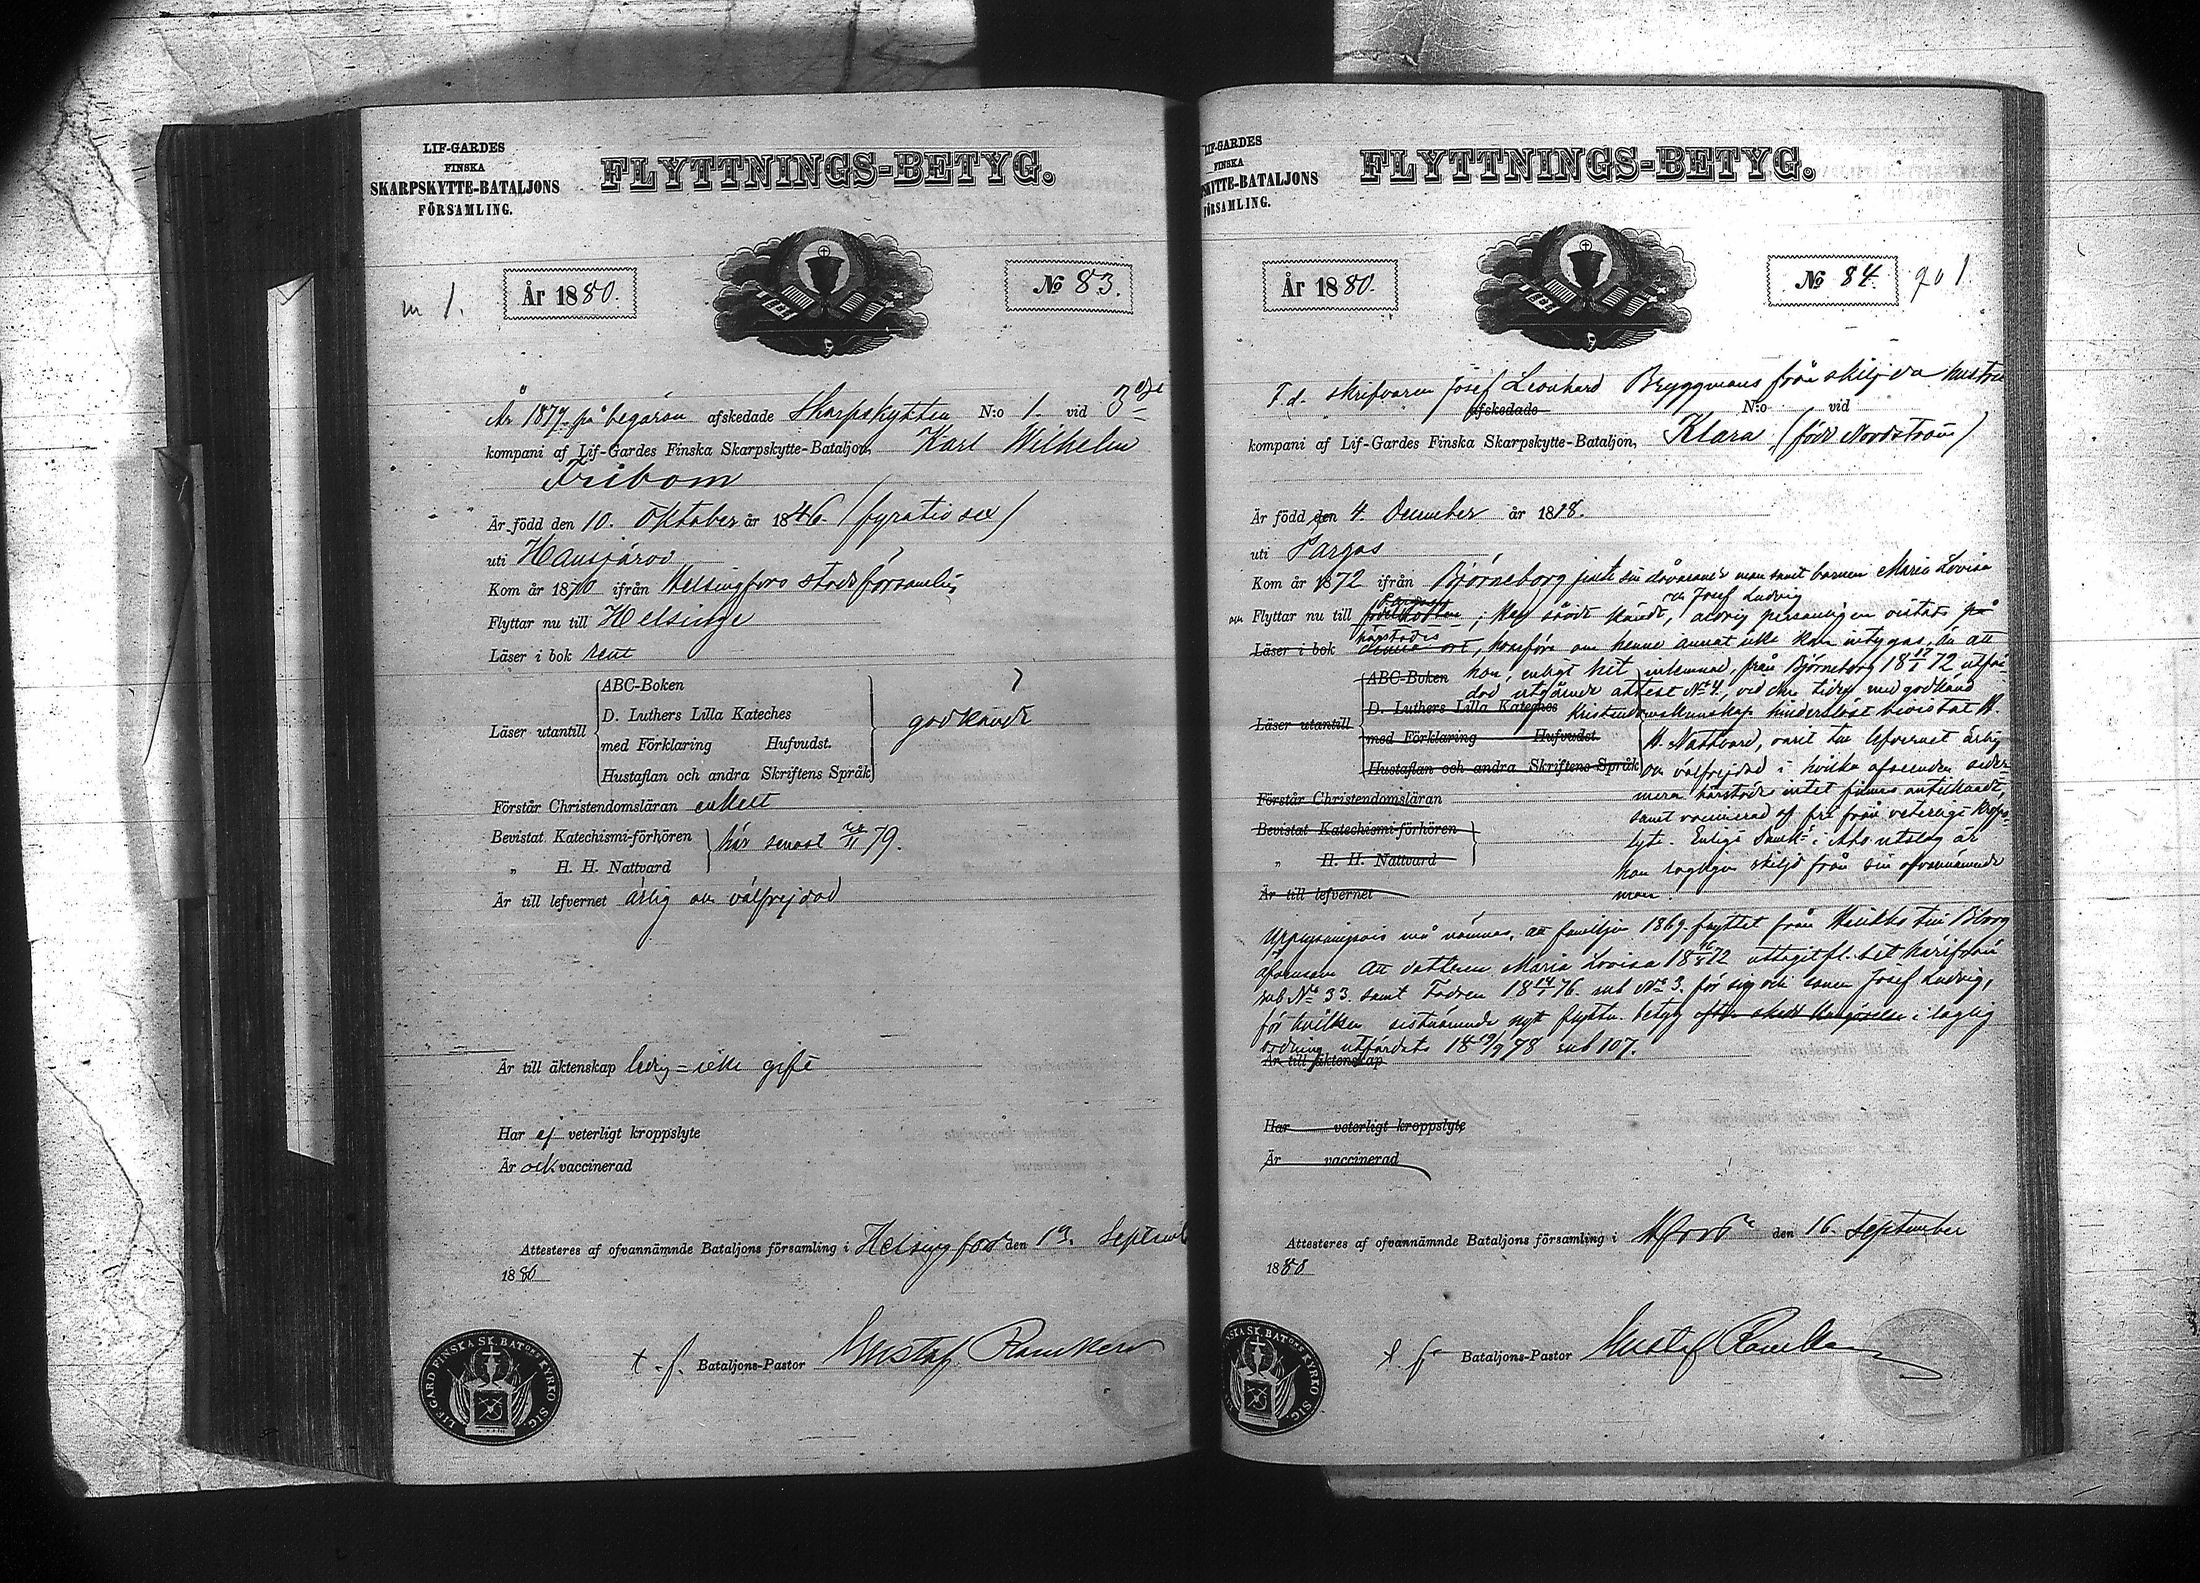 LIF-GARDES
FINSKA
SKARPSKYTTE-BATALJONS
FÖRSAMLING.
FLYTTNINGS-BETYG.
m 1.
År 1880.
No 83.
År 1879 på begäran afskedade Skarpskytten N:o 1. vid 3dje
kompani af Lif-Gardes Finska Skarpskytte-Bataljon, Karl Wilhelm
Fribom
Är född den 10. Oktober år 1846 (fyratio sex)
uti Hausjärvi
Kom år 1870 ifrån Helsingfors stadsförsamling
Flyttar nu till Helsinge
Läser i bok rent
ABC-Boken
D. Luthers Lilla Kateches
Läser utantill
med Förklaring Hufvudst.
godkändt
Hustaflan och andra Skriftens Språk
Förstår Christendomsläran enkelt
Bevistat Katechismi-förhören
här senast 79.
„ H. H. Nattvard
Är till lefvernet ärlig och välfrejdad
Är till äktenskap ledig = icke gift
Har ej veterligt kroppslyte
Är ock vaccinerad
Attesteres af ofvannämnde Bataljons församling i Helsingfors den 13. Septemb
1880
t. f. Bataljons-Pastor Gustaf
LIF-GARD FINSKA SK. BATONS KYRKO SIG.
LIF-GARDES
FINSKA
SKYTTE-BATALJONS
FÖRSAMLING.
FLYTTNINGS-BETYG.
År 1880.
No 84.
qv 1.
F. d. skrifvaren Josef Leonhard Bryggmans frånskiljda hustru
afskedade N:o vid
kompani af Lif-Gardes Finska Skarpskytte-Bataljon, Klara (född Nordström)
Är född den 4. December år 1818.
uti Pargas
Kom år 1872 ifrån Björneborg jemte sin dåvarande man samt barnen Maria Lovisa
och Josef Ludvig
Flyttar nu till ; aldrig personligen vistats på
härstädes
Läser i bok denna ort, hvarföre om henne annat icke kan intygas, än att
ABC-Boken hon, enligt hit inlemnad, från Björneborg 1872 utfär
dad utgående attest No 4., vid den tiden med godkänd
D. Luthers Lilla Kateches Kristendomskunskap hinderslöst bevistat H.
Läser utantill
med Förklaring Hufvudst. H. Nattvard, varit till lefvernet ärlig
Hustaflan och andra Skriftens Språk och välfrejdad i hvilka afseenden seder-
mera härstädes intet finnes antecknadt,
Förstår Christendomsläran
samt vaccinerad och fri från veterligt kropps-
Bevistat Katechismi-förhören
lyte. Enligt i Åbo utslag är
„ H. H. Nattvard
hon lagligen skiljd från sin ofvannämnde
Är till lefvernet
man.
Upplysningsvis må nämnas, att familjen 1869 flyttat från till Bborg
äfvensom att dottern Maria Lovisa 1872 uttagit fl. bet. härifrån
sub No 33. samt Fadren 1876. sub No 3. för sig och sonen Josef Ludvig,
för hvilken sistnämnde nytt flyttn. betyg efter skedd kungörelse i laglig
ordning utfärdats 1878 sub 107.
Är till äktenskap
Har veterligt kroppslyte
Är vaccinerad
Attesteres af ofvannämnde Bataljons församling i Hfors den 16. September
1880
t. f. Bataljons-Pastor Gustaf